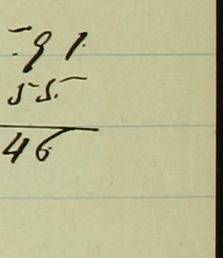 91
55
46